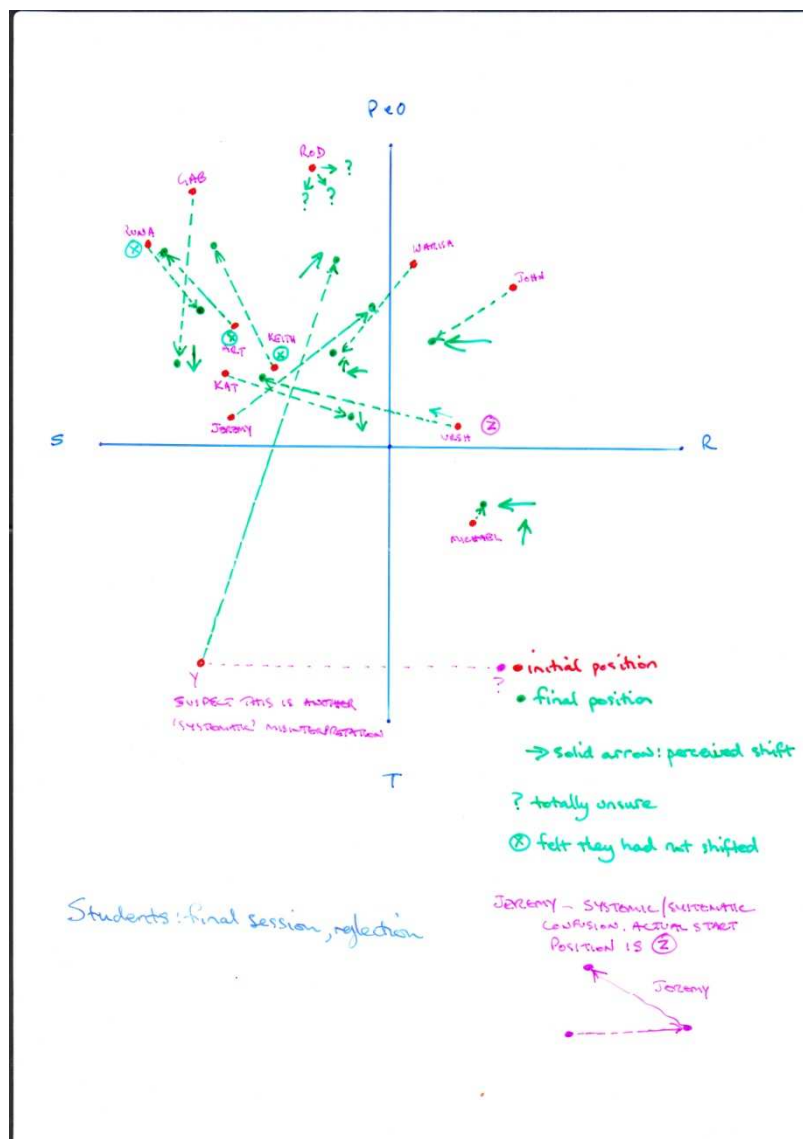 P&O
ROD
?
?
?
GAB
RUNA
X
WARISA
JOHN
ART
X
KEITH
X
KAT
JEREMY
URSH
Z
S
R
MICHAEL
Y
?
SUSPECT THIS IS ANOTHER
'SYSTEMATIC' MISINTERPRETATION
T
initial position
final position
→ solid arrow: perceived shift
? totally unsure
X felt they had not shifted
Students: final session, reflection
JEREMY – SYSTEMIC/SYSTEMATIC
CONFUSION. ACTUAL START
POSITION IS Z
JEREMY